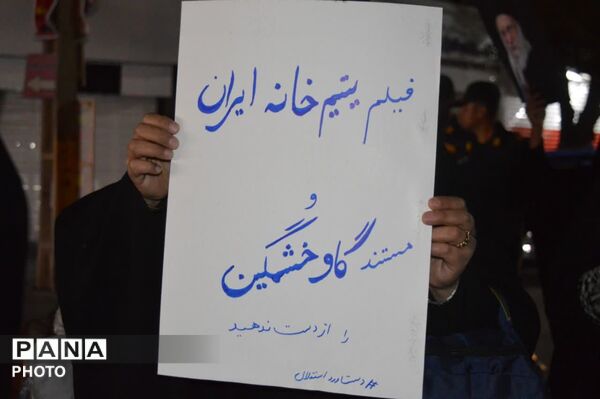 فیلم یتیم خانه ایران
و
مستند گاو خشمگین
را از دست ندهید
# دستاورد استقلال
PANA
PHOTO